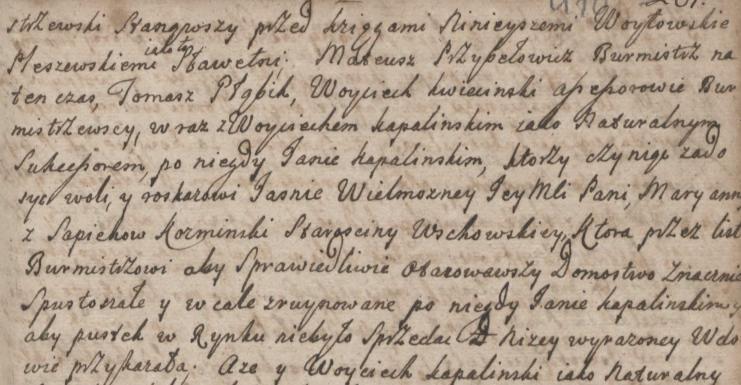 strzewski Stanąwszy przed xięgami Ninieyszemi Woytowskie
Pleszewskiemi jako to Sławetni: Mateusz Przybełowicz Burmistrz na
ten czas, Tomasz Płąbik, Woyciech Kwiecinski assessorowie Bur
mistrzewscy, wraz z Woyciechem Kapalinskim iako Naturalnym
Sukcessorem, po niegdy Janie Kapalinskim, ktorzy czyniąc zado
syc woli, y roskazowi Jasnie Wielmozney Jey Mci Pani, Maryanny
z Sapiehow Kozminski Starosciny Wschowskiey, Ktora przez list
Burmistrzowi aby Sprawiedliwie otaxowawszy Domostwo znacznie
Spustoszałe y w cale zruynowane po niegdy Janie Kapalinskim
aby pustek w Rynku niebyło Sprzedac Nizey wyrazoney Wdo
wie przykazała; Aze y Woyciech Kapalinski iako Naturalny